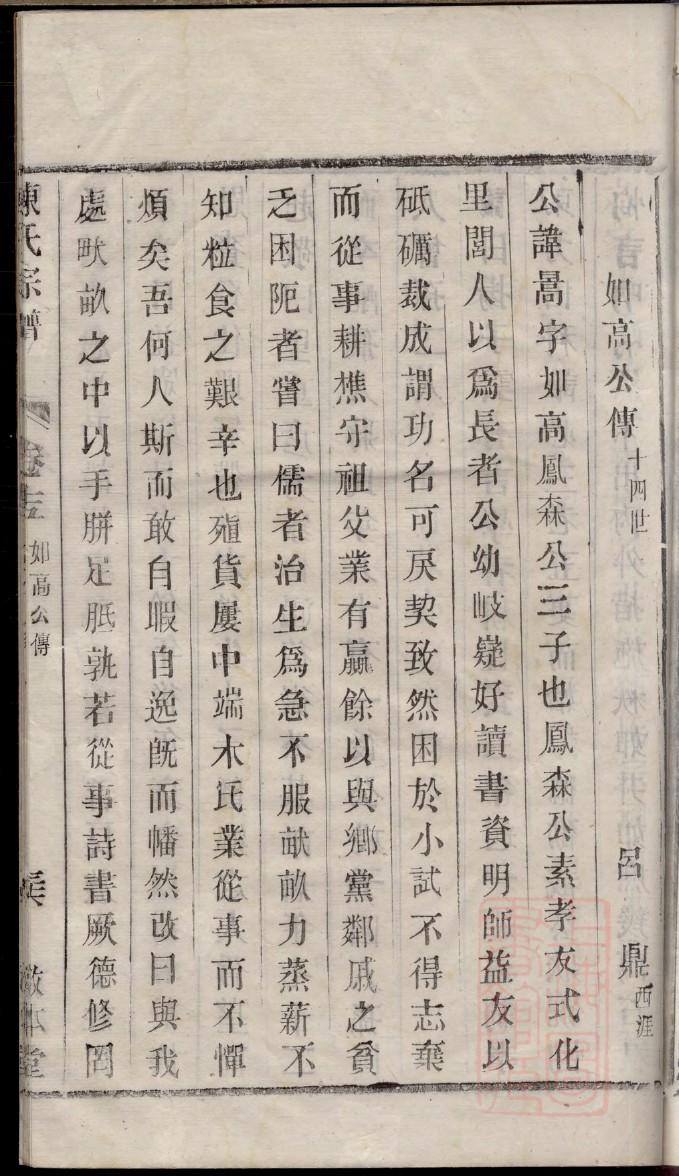 如高公傳 十四世 呂鼎 西涯
公諱暠字如高鳳森公三子也鳳森公素孝友式化
里閭人以爲長者公幼岐嶷好讀書資明師益友以
砥礪裁成謂功名可戾契致然困於小試不得志棄
而從事耕樵守祖父業有贏餘以與鄉黨鄰戚之貧
乏困阨者嘗曰儒者治生爲急不服畎畝力蒸薪不
知粒食之艱辛也殖貨屢中端木氏業從事而不憚
煩矣吾何人斯而敢自暇自逸旣而幡然改曰與我
處畎畝之中以手胼足胝孰若從事詩書厥德修罔
陳氏宗譜 卷 如高公傳 敬本堂